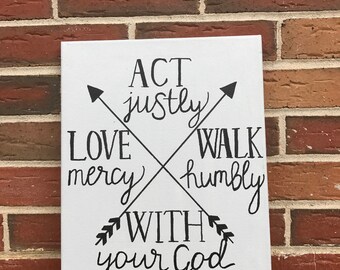 ACT
justly
LOVE WALK
mercy humbly
WITH
your God